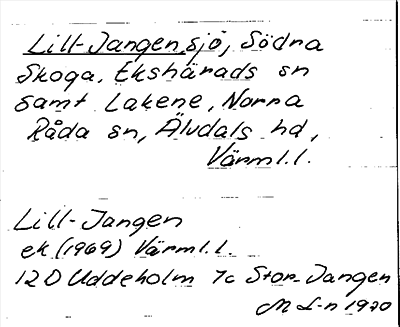 Lill-Jangen, sjö, Södra
Skoga, Ekshärads sn
samt Lakene, Norra
Råda sn, Älvdals hd,
Värml.l.
Lill-Jangen
ek (1969) Värml.l.
12 D Uddeholm 7c Stor-Jangen
M L-n 1970